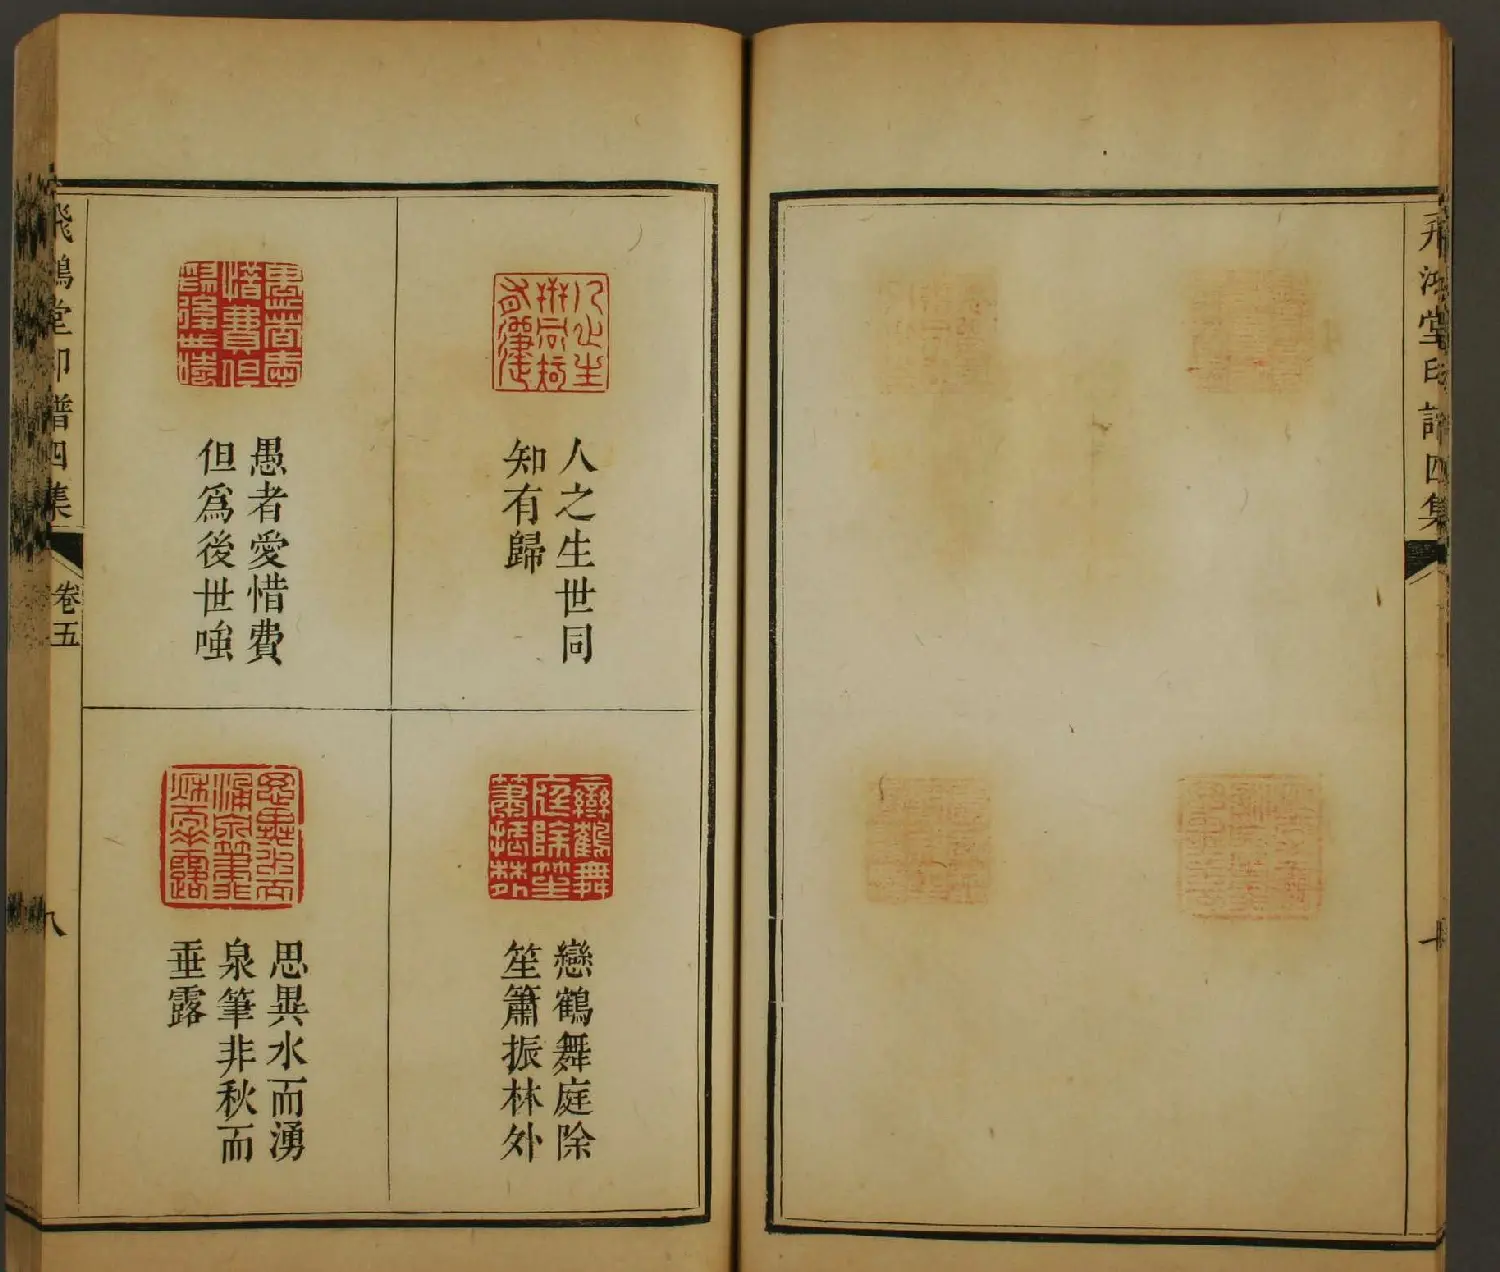 人之生世同
知有歸
愚者愛惜費
但爲後世嗤
戀鶴舞庭除
笙簫振林外
思異水而湧
泉筆非秋而
垂露
飛鴻堂印譜四集
卷五
八
飛鴻堂印譜四集